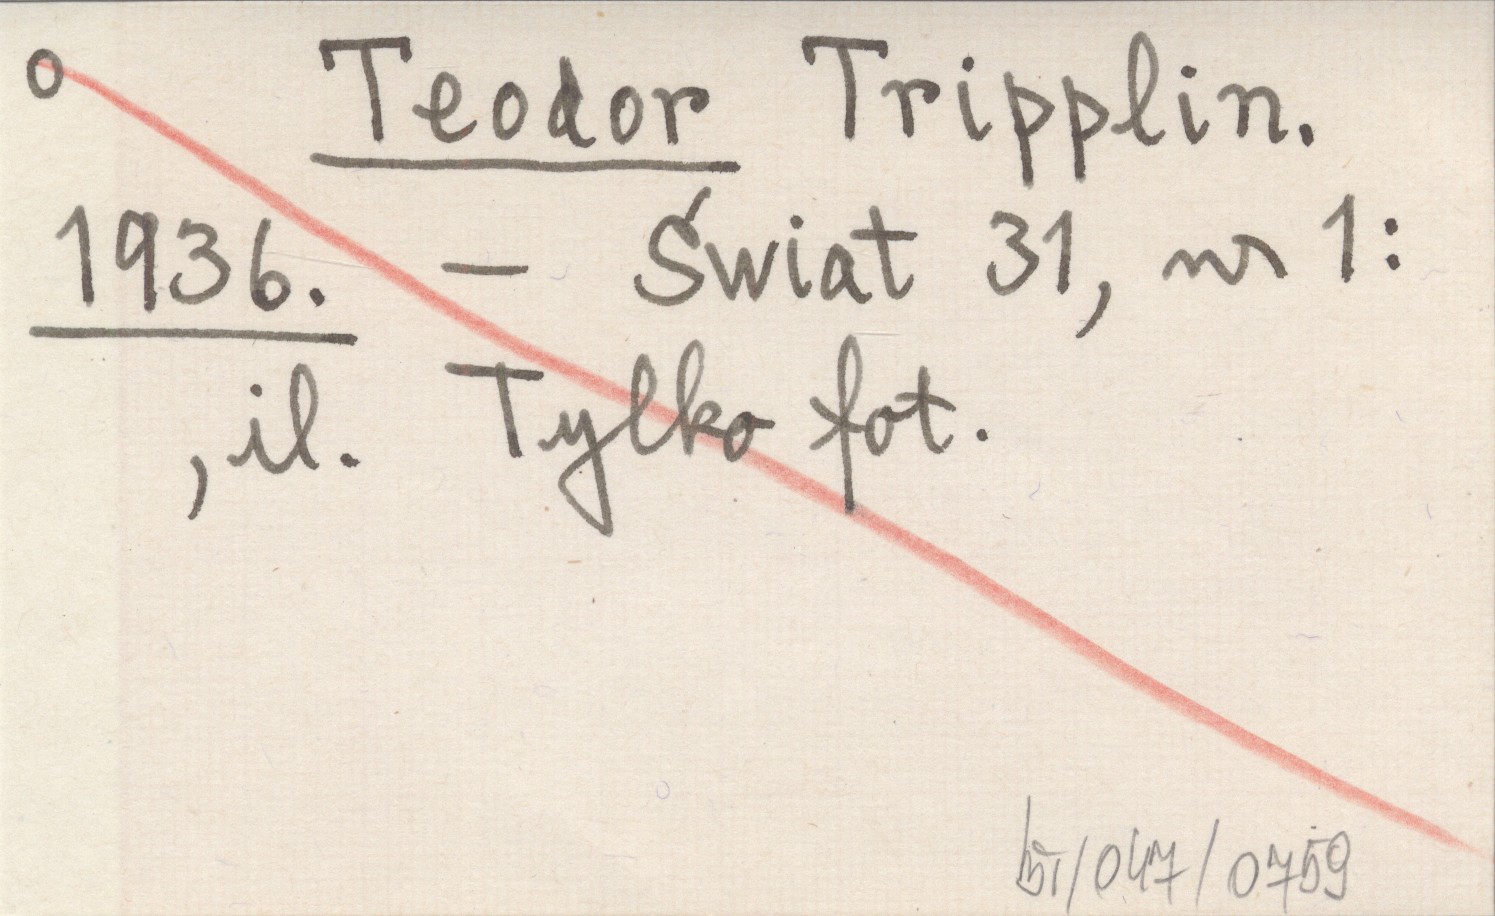 o Teodor Tripplin.
1936. – Świat 31, nr 1:
, il. Tylko fot.
/047/0759